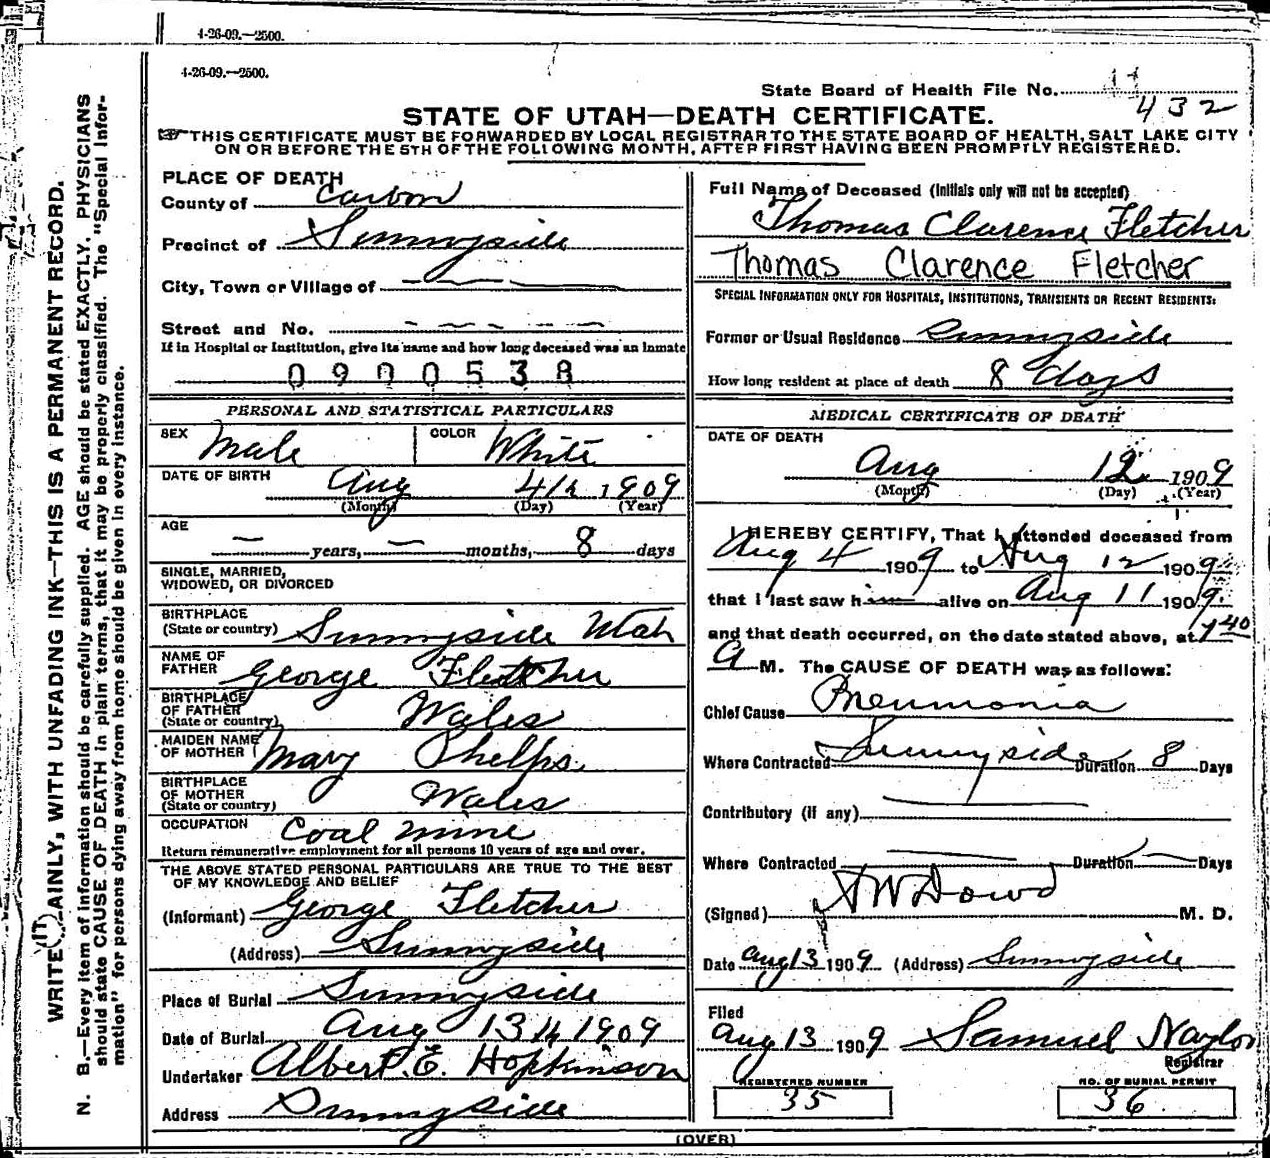 4-26-09.—2500.
4-26-09.—2500.
State Board of Health File No. 14
432
STATE OF UTAH—DEATH CERTIFICATE.
THIS CERTIFICATE MUST BE FORWARDED BY LOCAL REGISTRAR TO THE STATE BOARD OF HEALTH, SALT LAKE CITY
ON OR BEFORE THE 5TH OF THE FOLLOWING MONTH, AFTER FIRST HAVING BEEN PROMPTLY REGISTERED.
WRITE PLAINLY, WITH UNFADING INK—THIS IS A PERMANENT RECORD.
N. B.—Every item of information should be carefully supplied. AGE should be stated EXACTLY. PHYSICIANS
should state CAUSE OF DEATH in plain terms, that it may be properly classified. The "Special Infor-
mation" for persons dying away from home should be given in every instance.
PLACE OF DEATH
County of Carbon
Precinct of Sunnyside
City, Town or Village of
Street and No.
If in Hospital or Institution, give its name and how long deceased was an inmate
0900538
PERSONAL AND STATISTICAL PARTICULARS
SEX Male COLOR White
DATE OF BIRTH Aug 4th 1909
(Month) (Day) (Year)
AGE
— years, — months, 8 days
SINGLE, MARRIED,
WIDOWED, OR DIVORCED
BIRTHPLACE
(State or country) Sunnyside Utah
NAME OF
FATHER George Fletcher
BIRTHPLACE
OF FATHER
(State or country) Wales
MAIDEN NAME
OF MOTHER Mary Phelps
BIRTHPLACE
OF MOTHER
(State or country) Wales
OCCUPATION Coal mine
Return remunerative employment for all persons 10 years of age and over.
THE ABOVE STATED PERSONAL PARTICULARS ARE TRUE TO THE BEST
OF MY KNOWLEDGE AND BELIEF
(Informant) George Fletcher
(Address) Sunnyside
Place of Burial Sunnyside
Date of Burial Aug 13th 1909
Undertaker Albert E. Hopkinson
Address Sunnyside
Full Name of Deceased (Initials only will not be accepted)
Thomas Clarence Fletcher
Thomas Clarence Fletcher
SPECIAL INFORMATION ONLY FOR HOSPITALS, INSTITUTIONS, TRANSIENTS OR RECENT RESIDENTS:
Former or Usual Residence Sunnyside
How long resident at place of death 8 days
MEDICAL CERTIFICATE OF DEATH
DATE OF DEATH
Aug 12 1909
(Month) (Day) (Year)
I HEREBY CERTIFY, That I attended deceased from
Aug 4 1909 to Aug 12 1909
that I last saw him alive on Aug 11 1909.
and that death occurred, on the date stated above, at 7 40
A M. The CAUSE OF DEATH was as follows:
Chief Cause Pneumonia
Where Contracted Sunnyside Duration 8 Days
Contributory (if any)
Where Contracted Duration — Days
(Signed) A W Dowd M. D.
Date Aug 13 1909 (Address) Sunnyside
Filed
Aug 13 1909 Samuel Naylor
Registrar
REGISTERED NUMBER
35
NO. OF BURIAL PERMIT
36
(OVER)